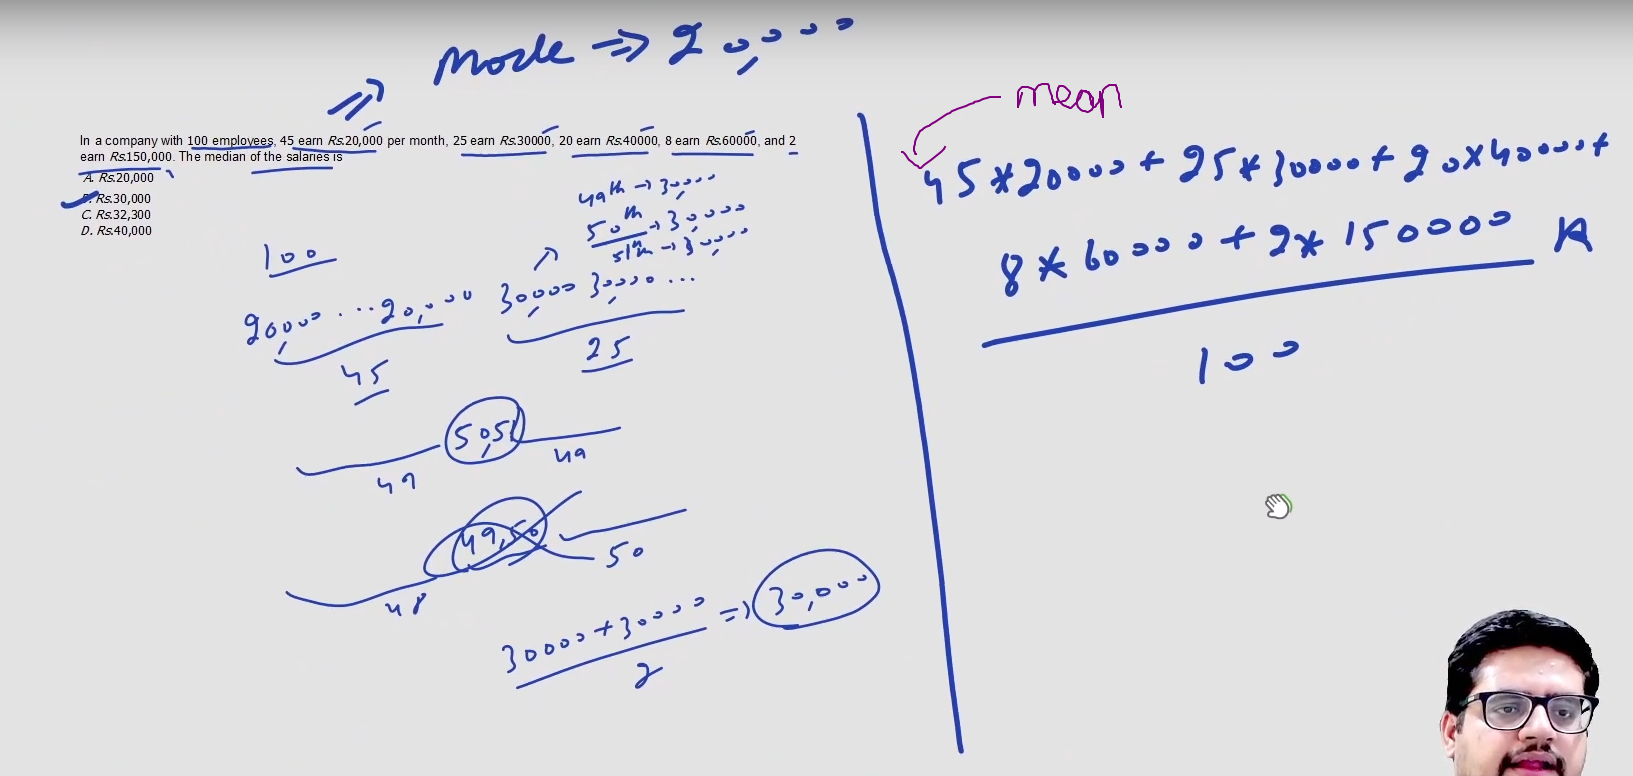 Mode ⇒ 20,000
⇒
In a company with 100 employees, 45 earn Rs.20,000 per month, 25 earn Rs.30000, 20 earn Rs.40000, 8 earn Rs.60000, and 2
earn Rs.150,000. The median of the salaries is
A. Rs.20,000
B. Rs.30,000
C. Rs.32,300
D. Rs.40,000
100
49th → 30,000
50th → 30,000
51th → 30,000
20,000 ... 20,000 30,000 30,000 ...
45
25
50,51
49
49
49,50
48
50
30000+30000
2
⇒ 30,000
mean
45*20000 + 25*30000 + 20*40000 +
8*60000 + 2*150000
100